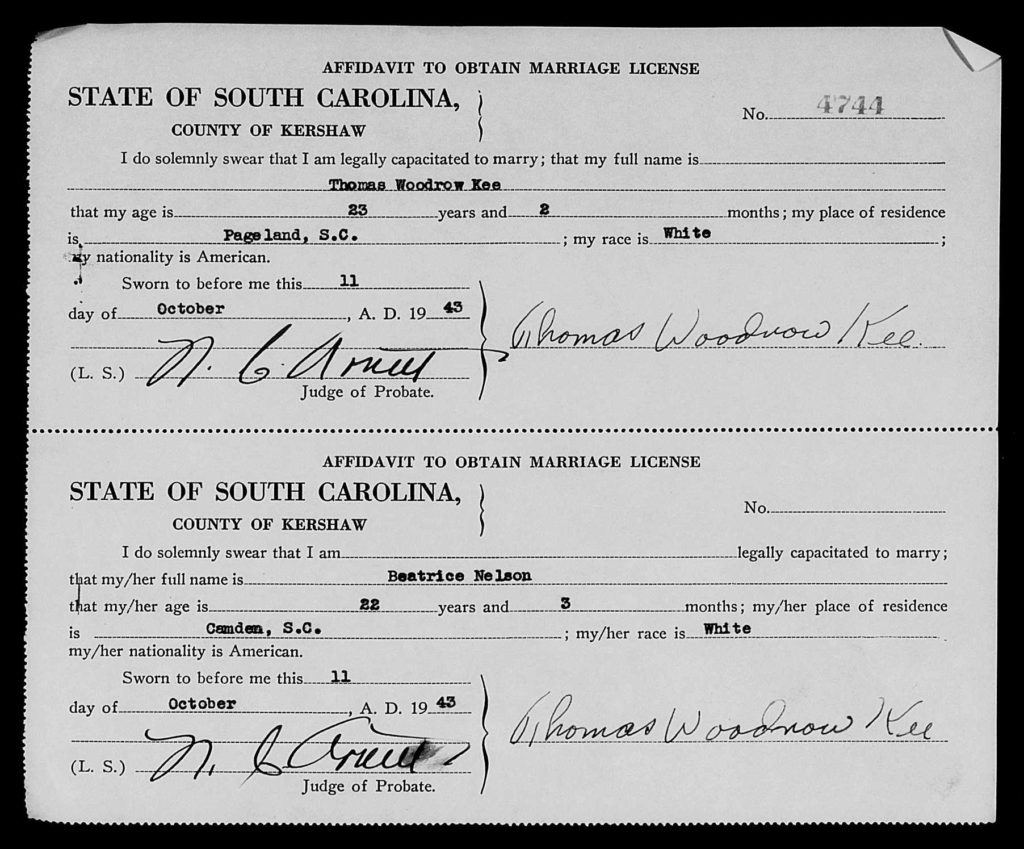 AFFIDAVIT TO OBTAIN MARRIAGE LICENSE
STATE OF SOUTH CAROLINA,
COUNTY OF KERSHAW
No. 4744
I do solemnly swear that I am legally capacitated to marry; that my full name is
Thomas Woodrow Kee
that my age is 23 years and 2 months; my place of residence
is Pageland, S.C. ; my race is White ;
my nationality is American.
Sworn to before me this 11
day of October , A. D. 19 43
Thomas Woodrow Kee.
(L. S.) N. C. Arnett
Judge of Probate.
AFFIDAVIT TO OBTAIN MARRIAGE LICENSE
STATE OF SOUTH CAROLINA,
COUNTY OF KERSHAW
No.
I do solemnly swear that I am legally capacitated to marry;
that my/her full name is Beatrice Nelson
that my/her age is 22 years and 3 months; my/her place of residence
is Camden, S.C. ; my/her race is White
my/her nationality is American.
Sworn to before me this 11
day of October , A. D. 19 43
Thomas Woodrow Kee
(L. S.) N. C. Arnett
Judge of Probate.